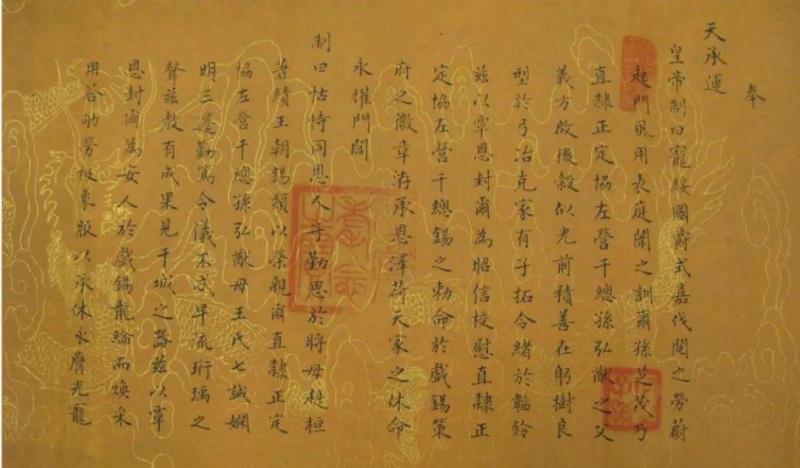 奉
天承運
皇帝制曰寵綏國爵式嘉伐閱之勞蔚
起門風用表庭闈之訓爾孫芝茂乃
直隸正定協左營千總孫弘猷之父
義方啟後穀似光前積善在躬樹良
型於弓冶克家有子拓令緒於韜鈐
茲以覃恩封爾為昭信校慰直隸正
定協左營千總錫之勅命於戲錫策
府之徽章洊承恩澤荷天家之休命
永耀門閭
制曰怙恃同恩人子勤思於將母赳桓
著績王朝錫類以榮親爾直隸正定
協左營千總孫弘猷母王氏七誡嫻
明三遷勤篤令儀不忒早流珩瑀之
聲茲穀有成果見干城之器茲以覃
恩封爾為安人於戲錫龍綸而煥采
用答劬勞被象服以承休永膺光寵